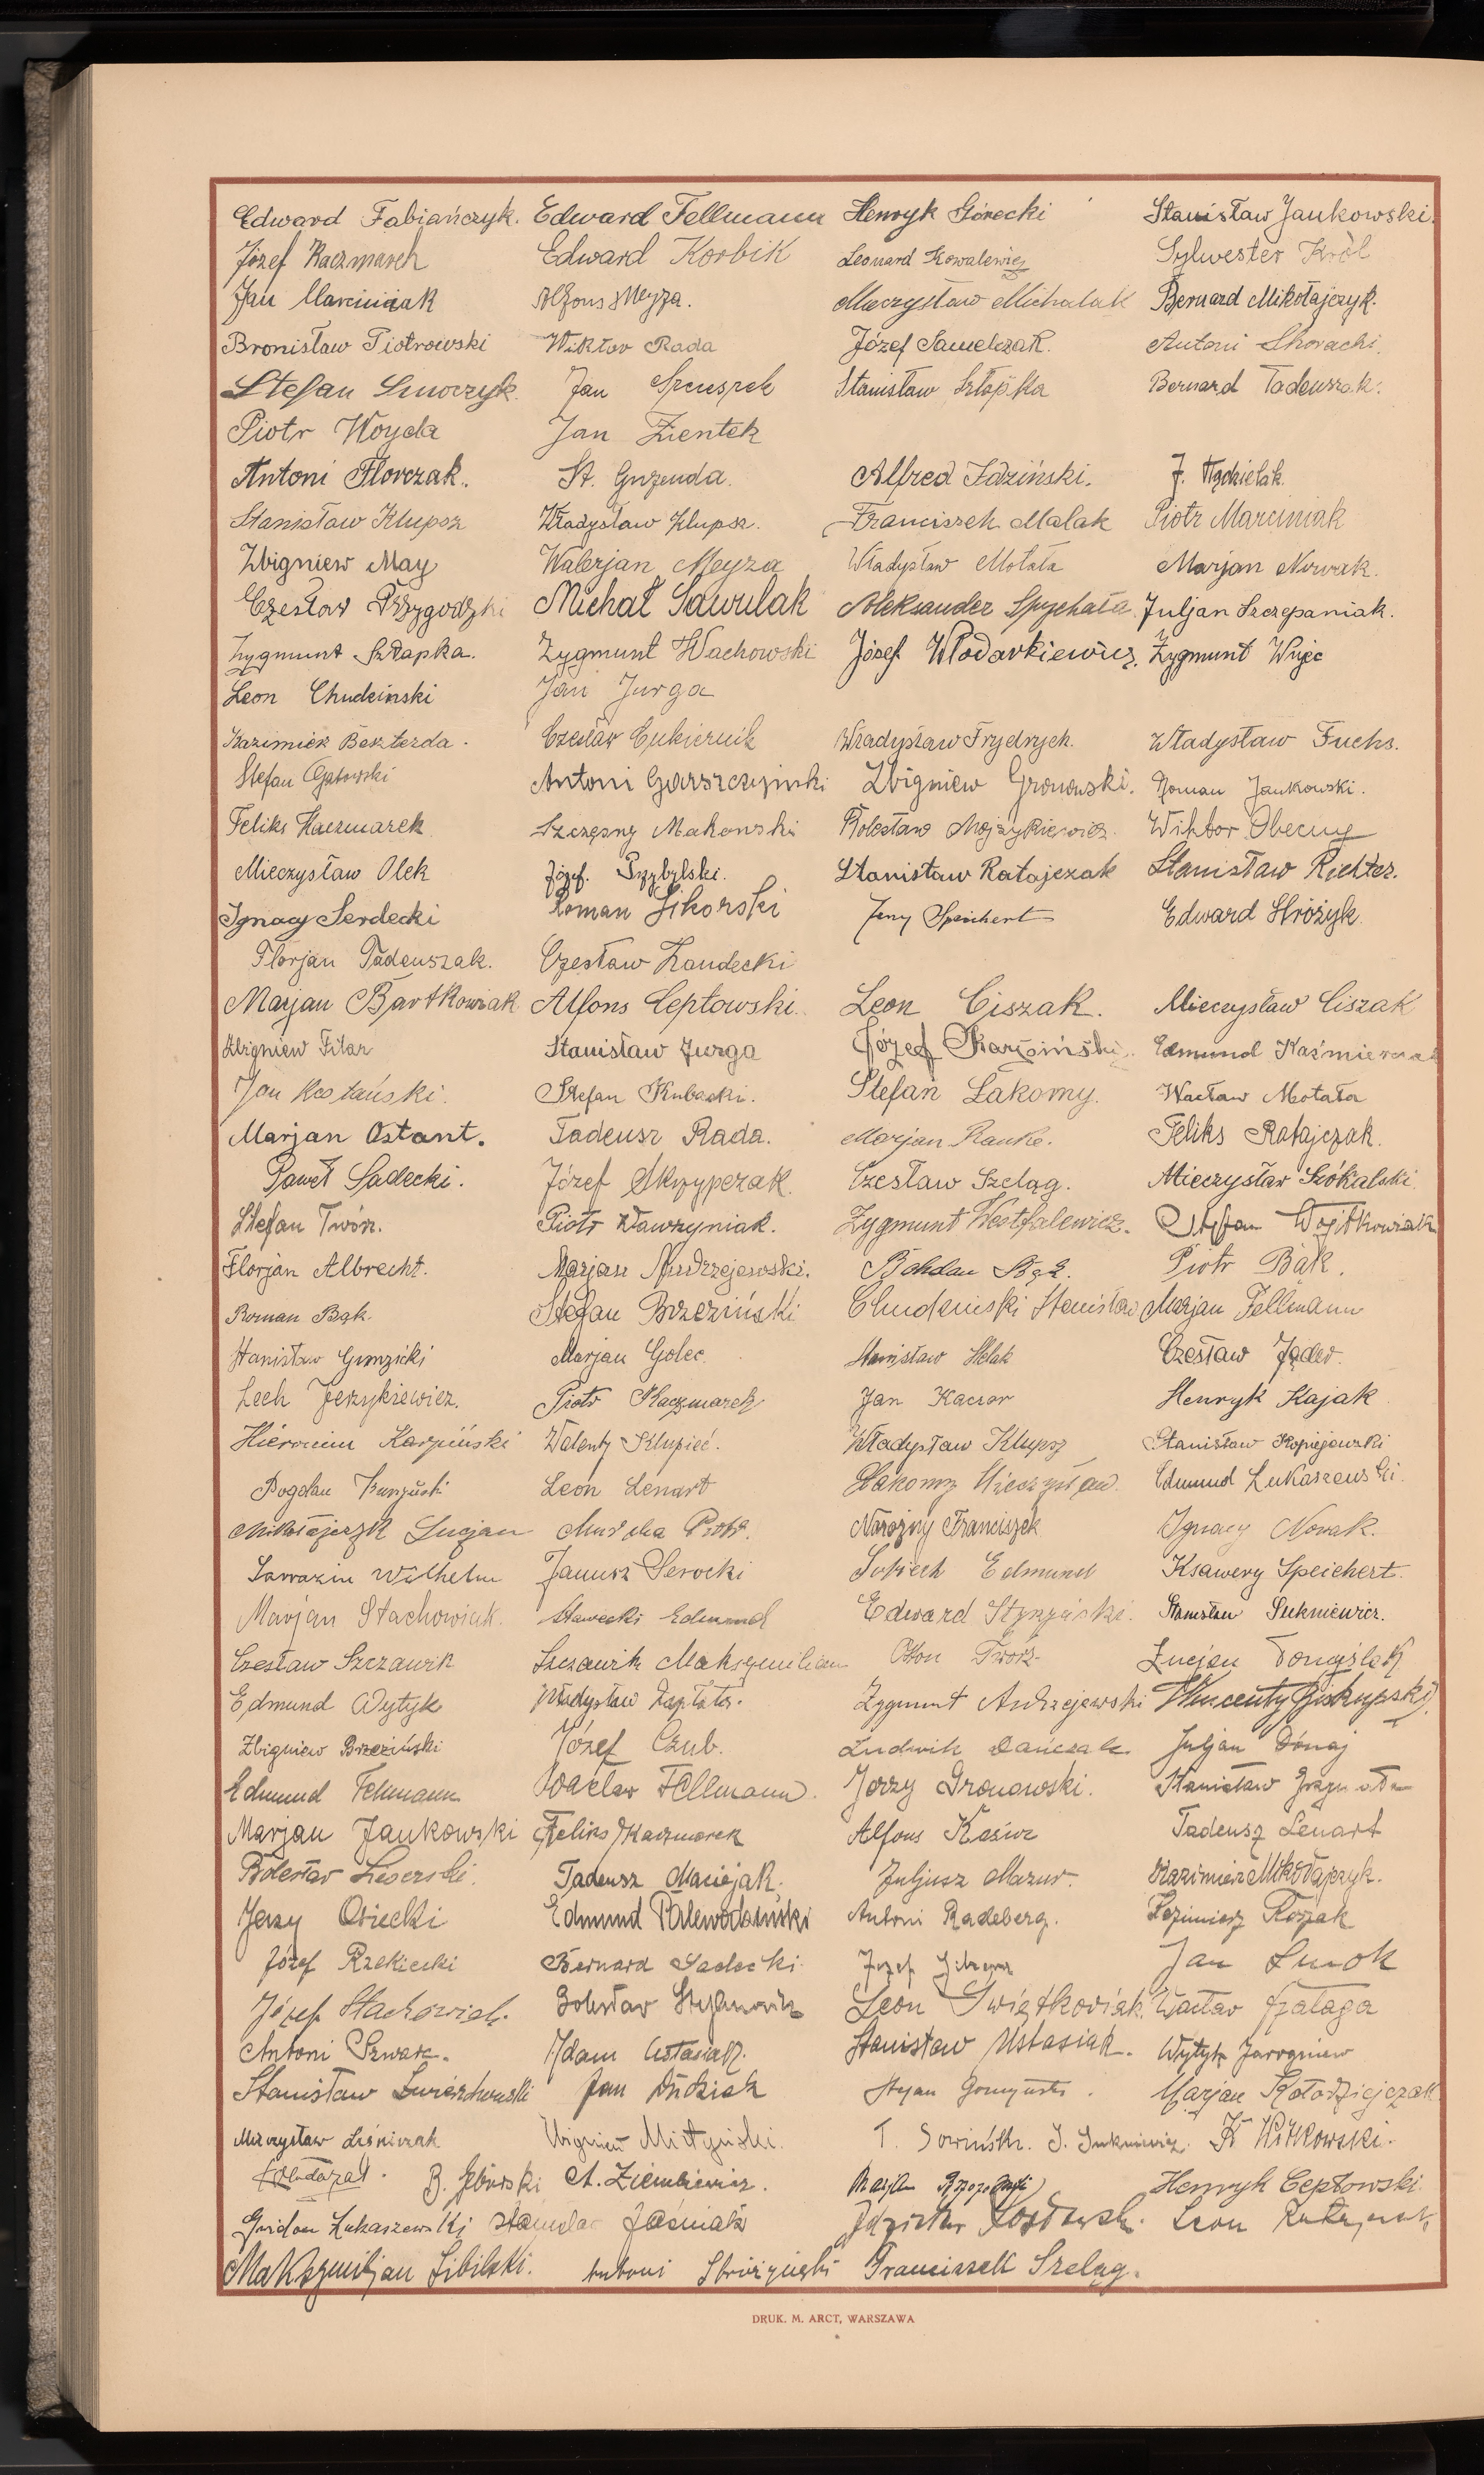 Edward Fabiańczyk. Edward Fellmann Henryk Górecki Stanisław Jankowski.
Józef Kaczmarek Edward Korbik Leonard Kowalewicz Sylwester Król
Jan Marciniak Alfons Meyza. Mieczysław Michalak Bernard Mikołajczyk.
Bronisław Piotrowski Wiktor Rada Józef Samelczak. Antoni Skoracki.
Stefan Smoczyk Jan Stanisław Szłapka Bernard Tadeuszak.
Piotr Woyda Jan Zientek
Antoni Florczak. St. Gryzenda. Alfred Idziński. J. Kądzielak.
Stanisław Klupsz Władysław Klupsz. Franciszek Malak Piotr Marciniak
Zbigniew May Walerjan Meyza Władysław Motała Marjan Nowak.
Czesław Przygodzki Michał Sawulak Aleksander Spychała. Juljan Szczepaniak.
Zygmunt Szłapka. Zygmunt Wachowski Józef Włodarkiewicz. Zygmunt Wujec
Leon Chudzinski Jan Jurga
Kazimierz Beszterda. Czesław Cukiernik Władysław Frydrych. Władysław Fuchs.
Stefan Gatowski Antoni Garszczyński Zbigniew Gronowski. Roman Jankowski.
Feliks Kaczmarek Szczęsny Makowski Bolesław Mojżykiewicz. Wiktor Obecny
Mieczysław Olek Józef. Przybylski. Stanisław Ratajczak Stanisław Richter.
Ignacy Serdecki Roman Sikorski Jerzy Speichert Edward Stróżyk.
Florjan Tadeuszak. Czesław Landecki
Marjan Bartkowiak Alfons Ceptowski. Leon Ciszak. Mieczysław Ciszak
Zbigniew Filar Stanisław Jurga Józef Karboiński. Edmund Kaśmierczak
Jan Kostański. Stefan Kubacki. Stefan Łakomy. Wacław Motała
Marjan Ostant. Tadeusz Rada. Marjan Ranke. Feliks Ratajczak.
Paweł Sadecki. Józef Skrzypczak. Czesław Szeląg. Mieczysław Szókalski
Stefan Twórz. Piotr Wawrzyniak. Zygmunt Westfalewicz. Stefan Wojtkowiak
Florjan Albrecht. Marjan Andrzejewski. Bohdan Bąk. Piotr Bąk.
Roman Bąk. Stefan Brzeziński Chudziński Stanisław Marjan Fellmann
Stanisław Gunzicki Marjan Golec. Stanisław Helak Czesław Jąder.
Lech Jerzykiewicz. Piotr Kaczmarek Jan Kaczor Henryk Kajak
Hieronim Karpiński Walenty Klupieć. Władysław Klupsz Stanisław Kopiejewski
Bogdan Leon Lenart Łakomy Mieczysław. Edmund Łukaszewski.
Mikołajczyk Lucjan Piotr. Narożny Franciszek Ignacy Nowak.
Sarrazin Wilhelm Janusz Serocki Edmund Ksawery Speichert.
Marjan Stachowiak. Stawecki Edmund Edward Stężycki. Stanisław Sukniewicz.
Czesław Szczawik Szczawik Maksymilian Otton Twórz Lucjan Tomyślak
Edmund Wytyk Władysław Zapłata. Zygmunt Andrzejewski Wincenty Biskupski
Zbigniew Brzeziński Józef Czub. Ludwik Dańczak Juljan Dónaj
Edmund Fellmann Wacław Fellmann. Jerzy Gronowski. Stanisław
Marjan Jankowski Feliks Kaczmarek Alfons Kośicz Tadeusz Lenart
Bolesław Tadeusz Maciejak. Juljusz Mazur. Kazimierz Mikołajczyk.
Jerzy Osiecki Edmund Palewodziński Antoni Radeberg. Kazimierz Rosiak
Józef Rzekiecki Bernard Sadecki Józef Jan Smok
Józef Stachowiak. Bolesław Stefanowicz Leon Świętkowiak. Wacław Szałaga
Antoni Szwarc. Adam Ustasiak. Stanisław Ustasiak. Wytyk Jarogniew
Stanisław Jan Dudziak Stefan Marjan Kołodziejczak
Mieczysław Liśniczak Zbigniew Miczyński. T. Sowińsk. J. Sukniewicz. K Witkowski.
B. Górski A. Ziemkiewicz. Henryk Ceptowski.
Gwidon Łukaszewski Stanisław Jaśniak Leon
Maksymiljan Sibilski. Antoni Stróżyński Franciszek Szeląg.
DRUK. M. ARCT, WARSZAWA